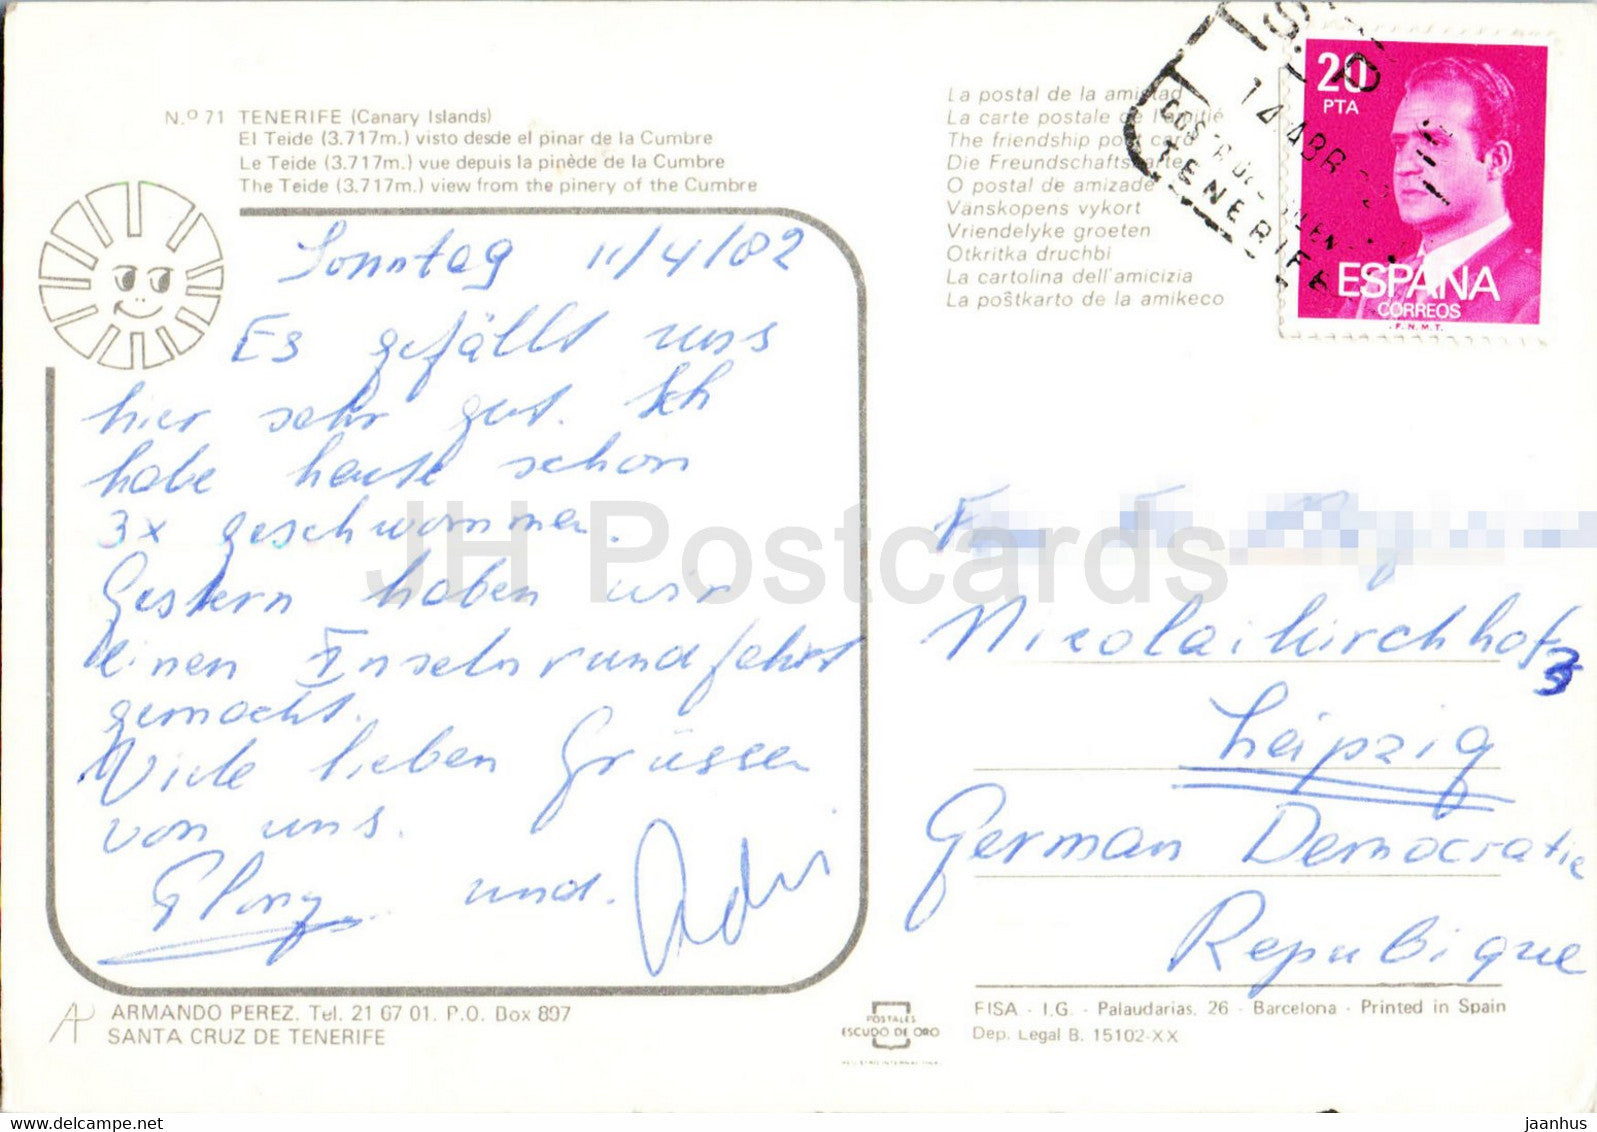 N.º 71 TENERIFE (Canary Islands)
El Teide (3.717m.) visto desde el pinar de la Cumbre
Le Teide (3.717m.) vue depuis la pinède de la Cumbre
The Teide (3.717m.) view from the pinery of the Cumbre
Sonntag 11/4/82
Es gefällt uns
hier sehr gut. Ich
habe heute schon
3x geschwommen.
Gestern haben wir
einen Inselnrundfahrt
gemacht.
Viele lieben Grüssen
von uns.
und.
ARMANDO PEREZ. Tel. 21 67 01. P.O. Box 897
SANTA CRUZ DE TENERIFE
La postal de la amistad
La carte postale de l'amitié
The friendship post card
Die Freundschaftskarte
O postal de amizade
Vänskopens vykort
Vriendelyke groeten
Otkritka druchbi
La cartolina dell'amicizia
La poŝtkarto de la amikeco
20
PTA
ESPAÑA
CORREOS
F.N.M.T.
14 ABR
TENERIFE
Nicolaikirchhof
3
Leipzig
German Democratic
Republique
POSTALES
ESCUDO DE ORO
FISA - I.G. - Palaudarias, 26 - Barcelona - Printed in Spain
Dep. Legal B. 15102-XX
JH Postcards
DELCAMPE.NET
jaanhus